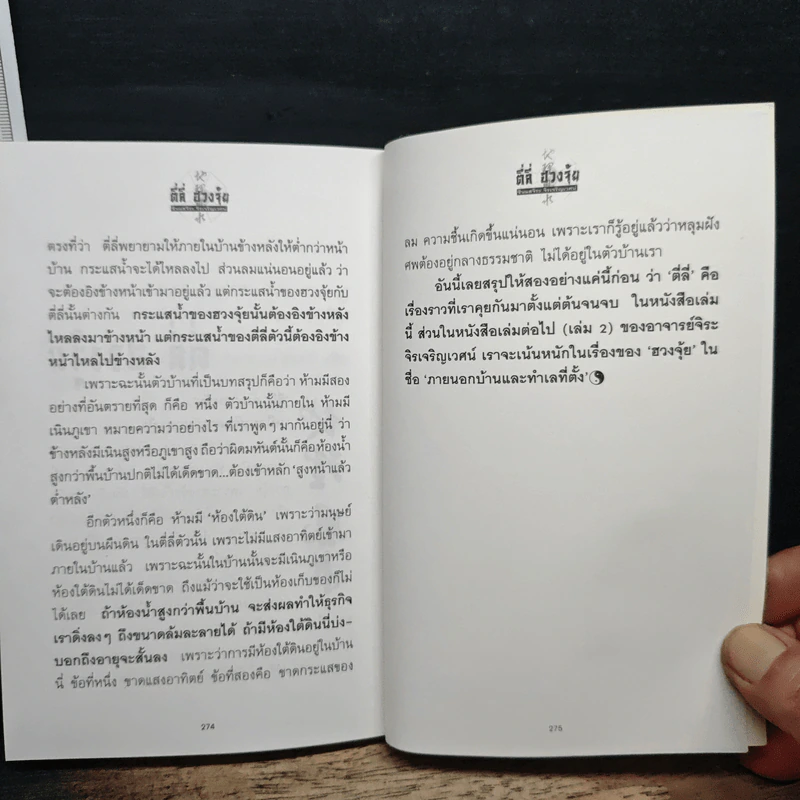 ตี่ลี่ ฮวงจุ้ย
ตรงที่ว่า ตี่ลี่พยายามให้ภายในบ้านข้างหลังให้ต่ำกว่าหน้า
บ้าน กระแสน้ำจะได้ไหลลงไป ส่วนลมแน่นอนอยู่แล้ว ว่า
จะต้องอิงข้างหน้าเข้ามาอยู่แล้ว แต่กระแสน้ำของฮวงจุ้ยกับ
ตี่ลี่นั้นต่างกัน กระแสน้ำของฮวงจุ้ยนั้นต้องอิงข้างหลัง
ไหลลงมาข้างหน้า แต่กระแสน้ำของตี่ลี่ตัวนี้ต้องอิงข้าง
หน้าไหลไปข้างหลัง
เพราะฉะนั้นตัวบ้านที่เป็นบทสรุปก็คือว่า ห้ามมีสอง
อย่างที่อันตรายที่สุด ก็คือ หนึ่ง ตัวบ้านนั้นภายใน ห้ามมี
เนินภูเขา หมายความว่าอย่างไร ที่เราพูดๆ มากันอยู่นี่ ว่า
ข้างหลังมีเนินสูงหรือภูเขาสูง ถือว่าผิดมหันต์นั้นก็คือห้องน้ำ
สูงกว่าพื้นบ้านปกติไม่ได้เด็ดขาด...ต้องเข้าหลัก ‘สูงหน้าแล้ว
ต่ำหลัง’
อีกตัวหนึ่งก็คือ ห้ามมี ‘ห้องใต้ดิน’ เพราะว่ามนุษย์
เดินอยู่บนผืนดิน ในตี่ลี่ตัวนั้น เพราะไม่มีแสงอาทิตย์เข้ามา
ภายในบ้านแล้ว เพราะฉะนั้นในบ้านนั้นจะมีเนินภูเขาหรือ
ห้องใต้ดินไม่ได้เด็ดขาด ถึงแม้ว่าจะใช้เป็นห้องเก็บของก็ไม่
ได้เลย ถ้าห้องน้ำสูงกว่าพื้นบ้าน จะส่งผลทำให้ธุรกิจ
เราดิ่งลงๆ ถึงขนาดล้มละลายได้ ถ้ามีห้องใต้ดินนี่บ่ง-
บอกถึงอายุจะสั้นลง เพราะว่าการมีห้องใต้ดินอยู่ในบ้าน
นี่ ข้อที่หนึ่ง ขาดแสงอาทิตย์ ข้อที่สองคือ ขาดกระแสของ
274
ตี่ลี่ ฮวงจุ้ย
ลม ความชื้นเกิดขึ้นแน่นอน เพราะเราก็รู้อยู่แล้วว่าหลุมฝัง
ศพต้องอยู่กลางธรรมชาติ ไม่ได้อยู่ในตัวบ้านเรา
อันนี้เลยสรุปให้สองอย่างแค่นี้ก่อน ว่า ‘ตี่ลี่’ คือ
เรื่องราวที่เราคุยกันมาตั้งแต่ต้นจนจบ ในหนังสือเล่ม
นี้ ส่วนในหนังสือเล่มต่อไป (เล่ม 2) ของอาจารย์จิระ
จิรเจริญเวศน์ เราจะเน้นหนักในเรื่องของ ‘ฮวงจุ้ย’ ใน
ชื่อ ‘ภายนอกบ้านและทำเลที่ตั้ง’
275